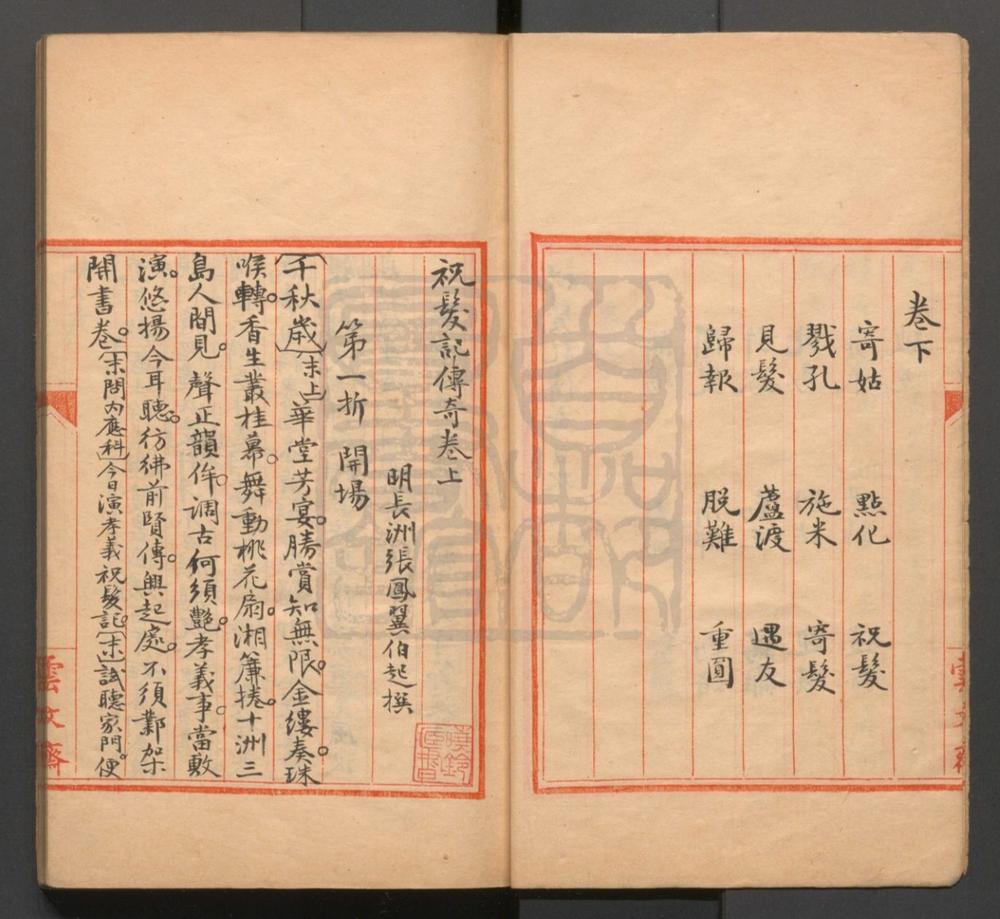 卷下
寄姑 點化 祝髮
戮孔 施米 寄髮
見髮 蘆渡 遇友
歸報 脫難 重圓
祝髮記傳奇卷上
明長洲張鳳翼伯起撰
第一折 開場
千秋歲末上華堂芳宴。勝賞知無限。金縷奏。珠
喉轉。香生叢桂幕。舞動桃花扇。湘簾捲。十洲三
島人間見。聲正韻侔。調古何須艷。孝義事。當敷
演。悠揚今耳聽。彷彿前賢傳。興起處。不須鄴架
開書卷。末問內應科今日演孝義祝髮記末試聽家門。便
雲文齋